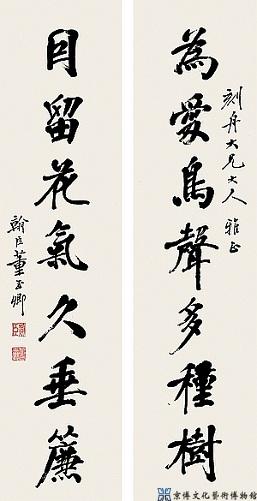 刻舟大兄大人 雅正
為愛鳥聲多種樹
囙留花氣久垂簾
翰臣董玉卿
京博文化藝術博物館